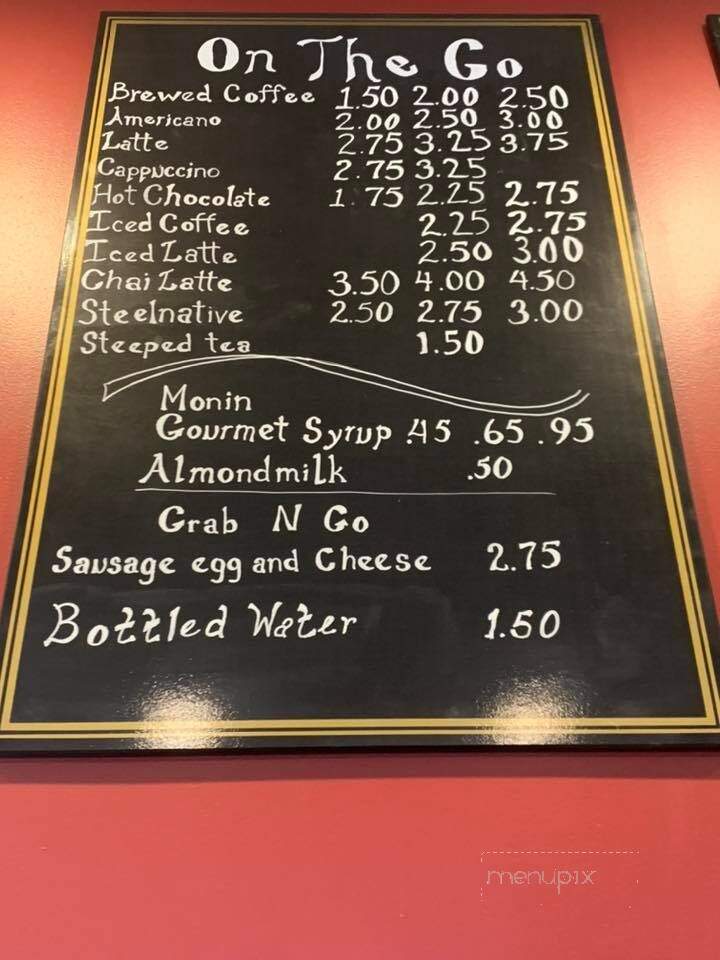 On The Go
Brewed Coffee 1.50 2.00 2.50
Americano 2.00 2.50 3.00
Latte 2.75 3.25 3.75
Cappuccino 2.75 3.25
Hot Chocolate 1.75 2.25 2.75
Iced Coffee 2.25 2.75
Iced Latte 2.50 3.00
Chai Latte 3.50 4.00 4.50
Steelnative 2.50 2.75 3.00
Steeped tea 1.50
Monin
Gourmet Syrup .45 .65 .95
Almondmilk .50
Grab N Go
Sausage egg and Cheese 2.75
Bottled Water 1.50
menupix